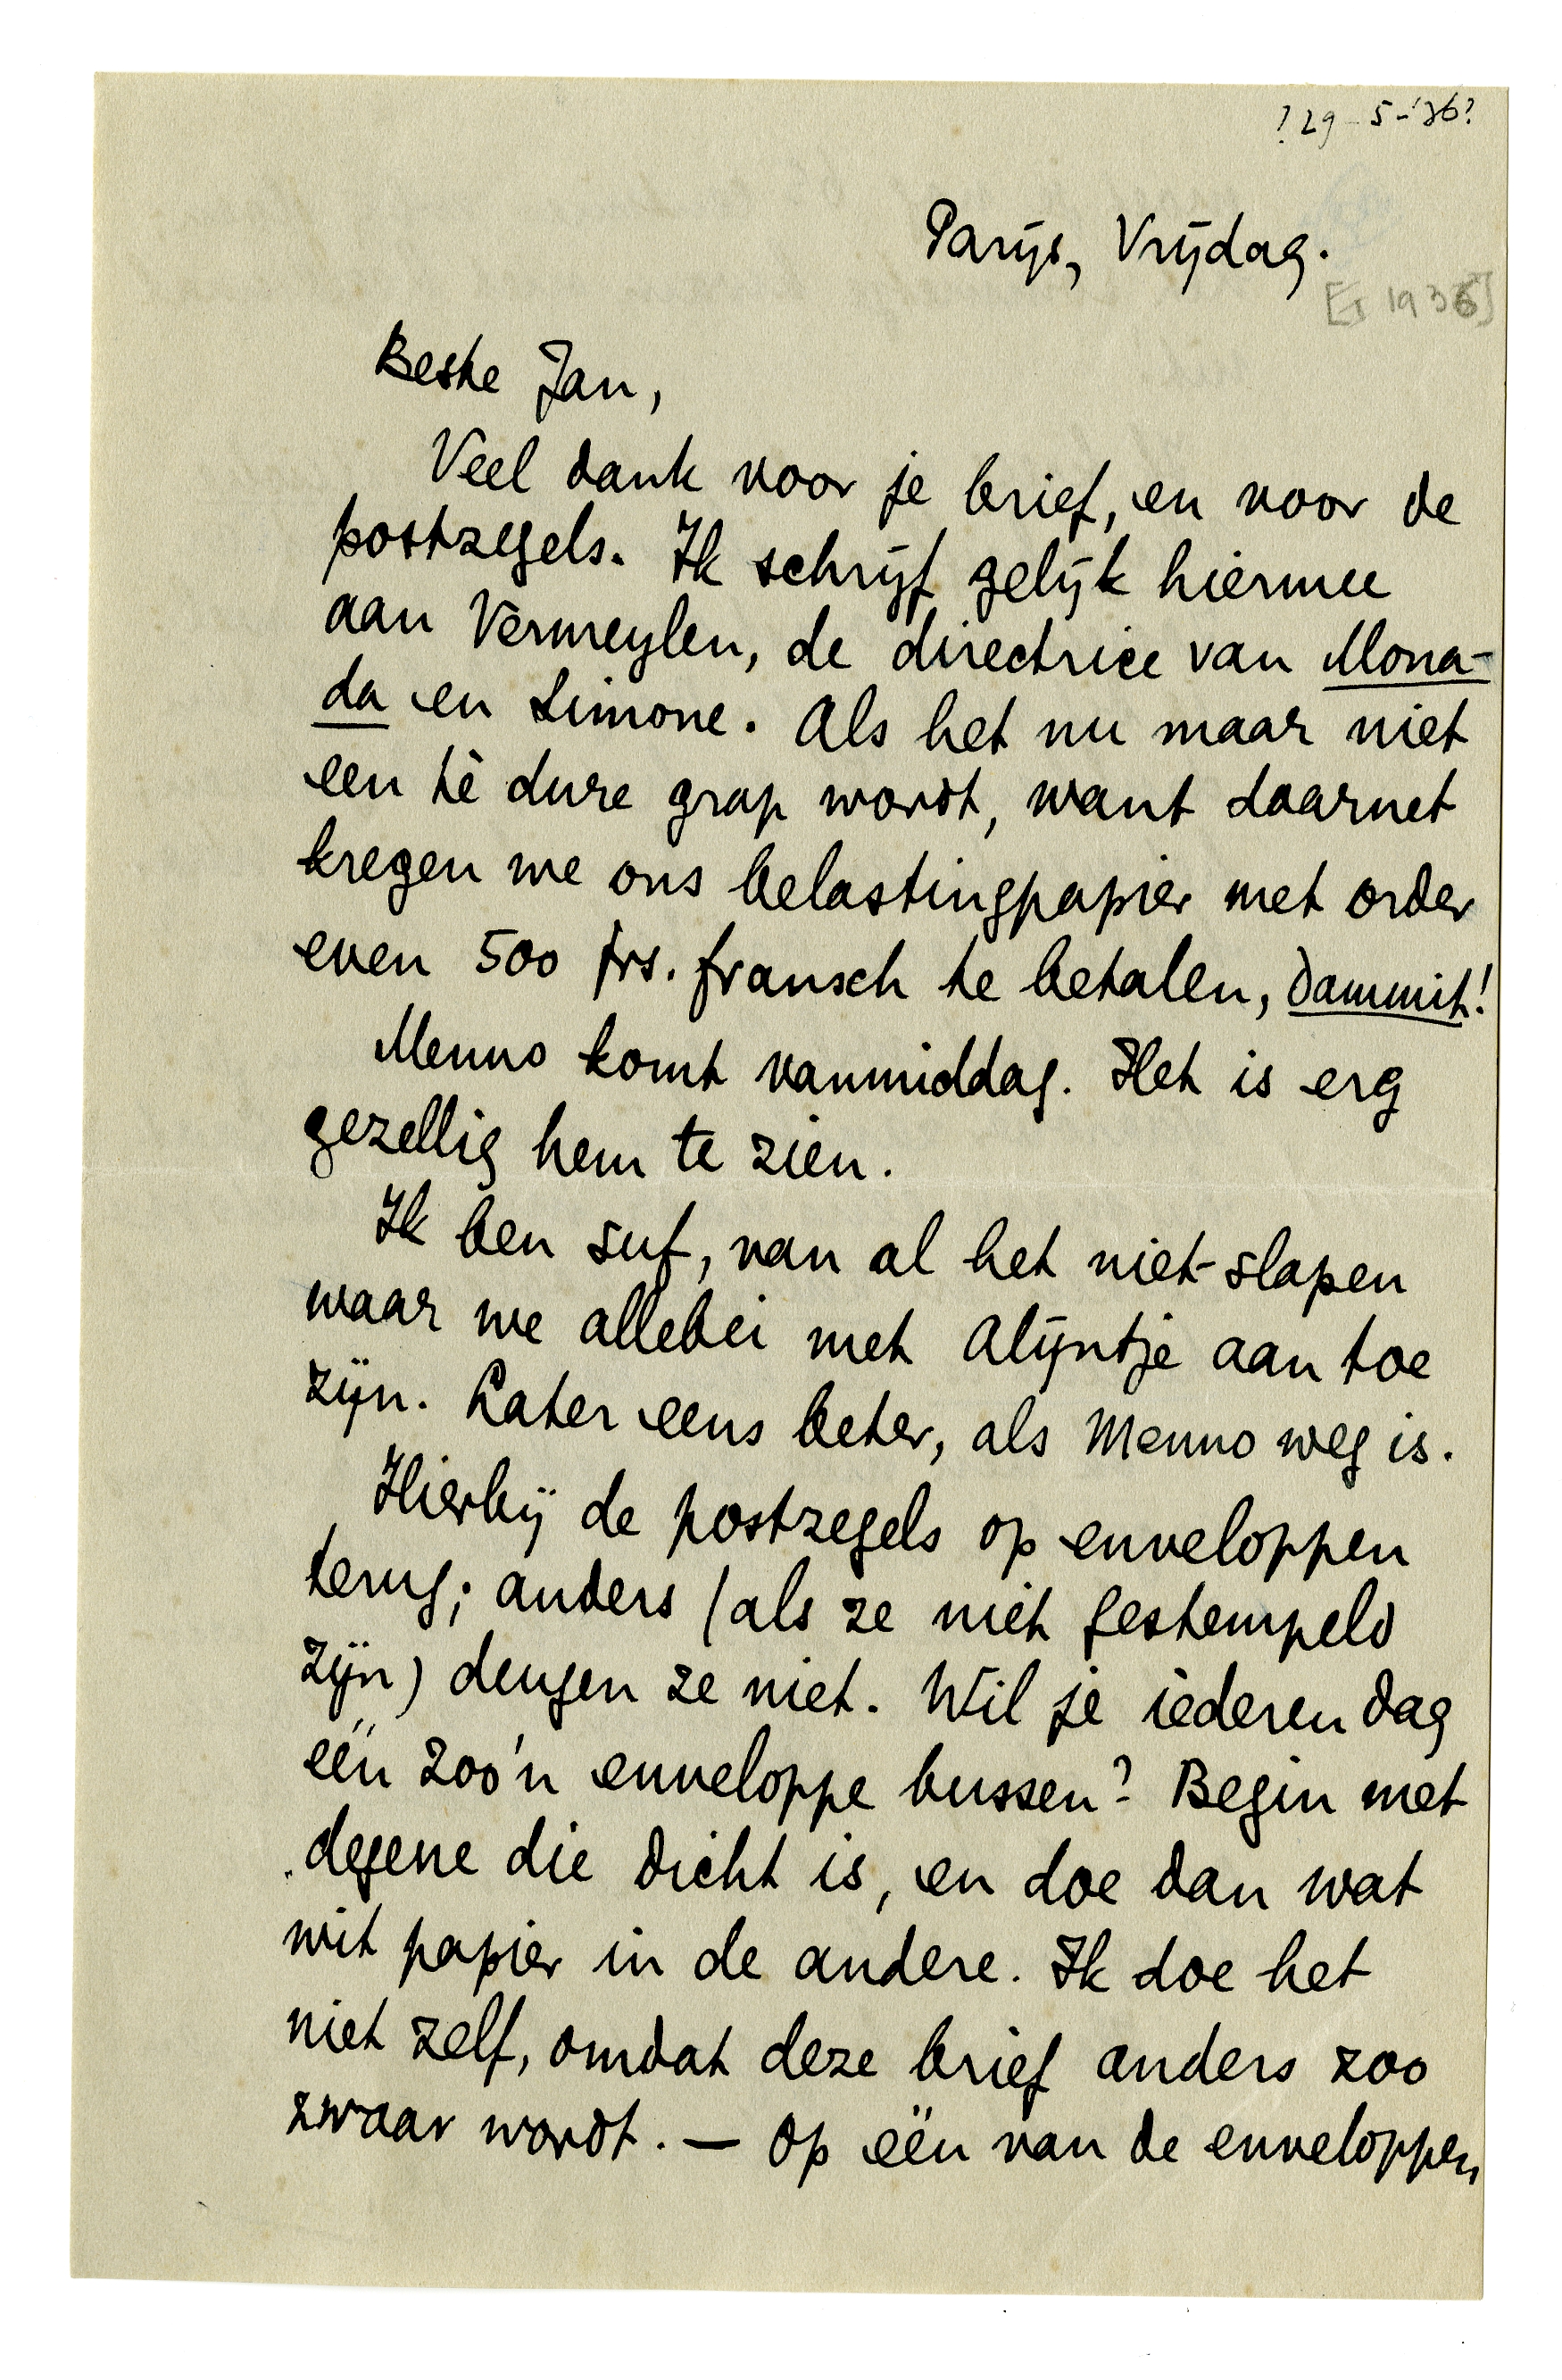 ? 29-5-'36?
Parijs, Vrijdag.
[ 1936]
Beste Jan,
Veel dank voor je brief, en voor de
postzegels. Ik schrijf gelijk hiermee
aan Vermeylen, de directrice van Mona-
da en Simone. Als het nu maar niet
een tè dure grap wordt, want daarnet
kregen we ons belastingpapier met order
even 500 frs. fransch te betalen, dammit!
Menno komt vanmiddag. Het is erg
gezellig hem te zien.
Ik ben suf, van al het niet-slapen
waar we allebei met Alijntje aan toe
zijn. Later eens beter, als Menno weg is.
Hierbij de postzegels op enveloppen
terug; anders (als ze niet gestempeld
zijn) deugen ze niet. Wil je iederen dag
één zoo'n enveloppe bussen? Begin met
degene die dicht is, en doe dan wat
wit papier in de andere. Ik doe het
niet zelf, omdat deze brief anders zoo
zwaar wordt. — Op één van de enveloppen